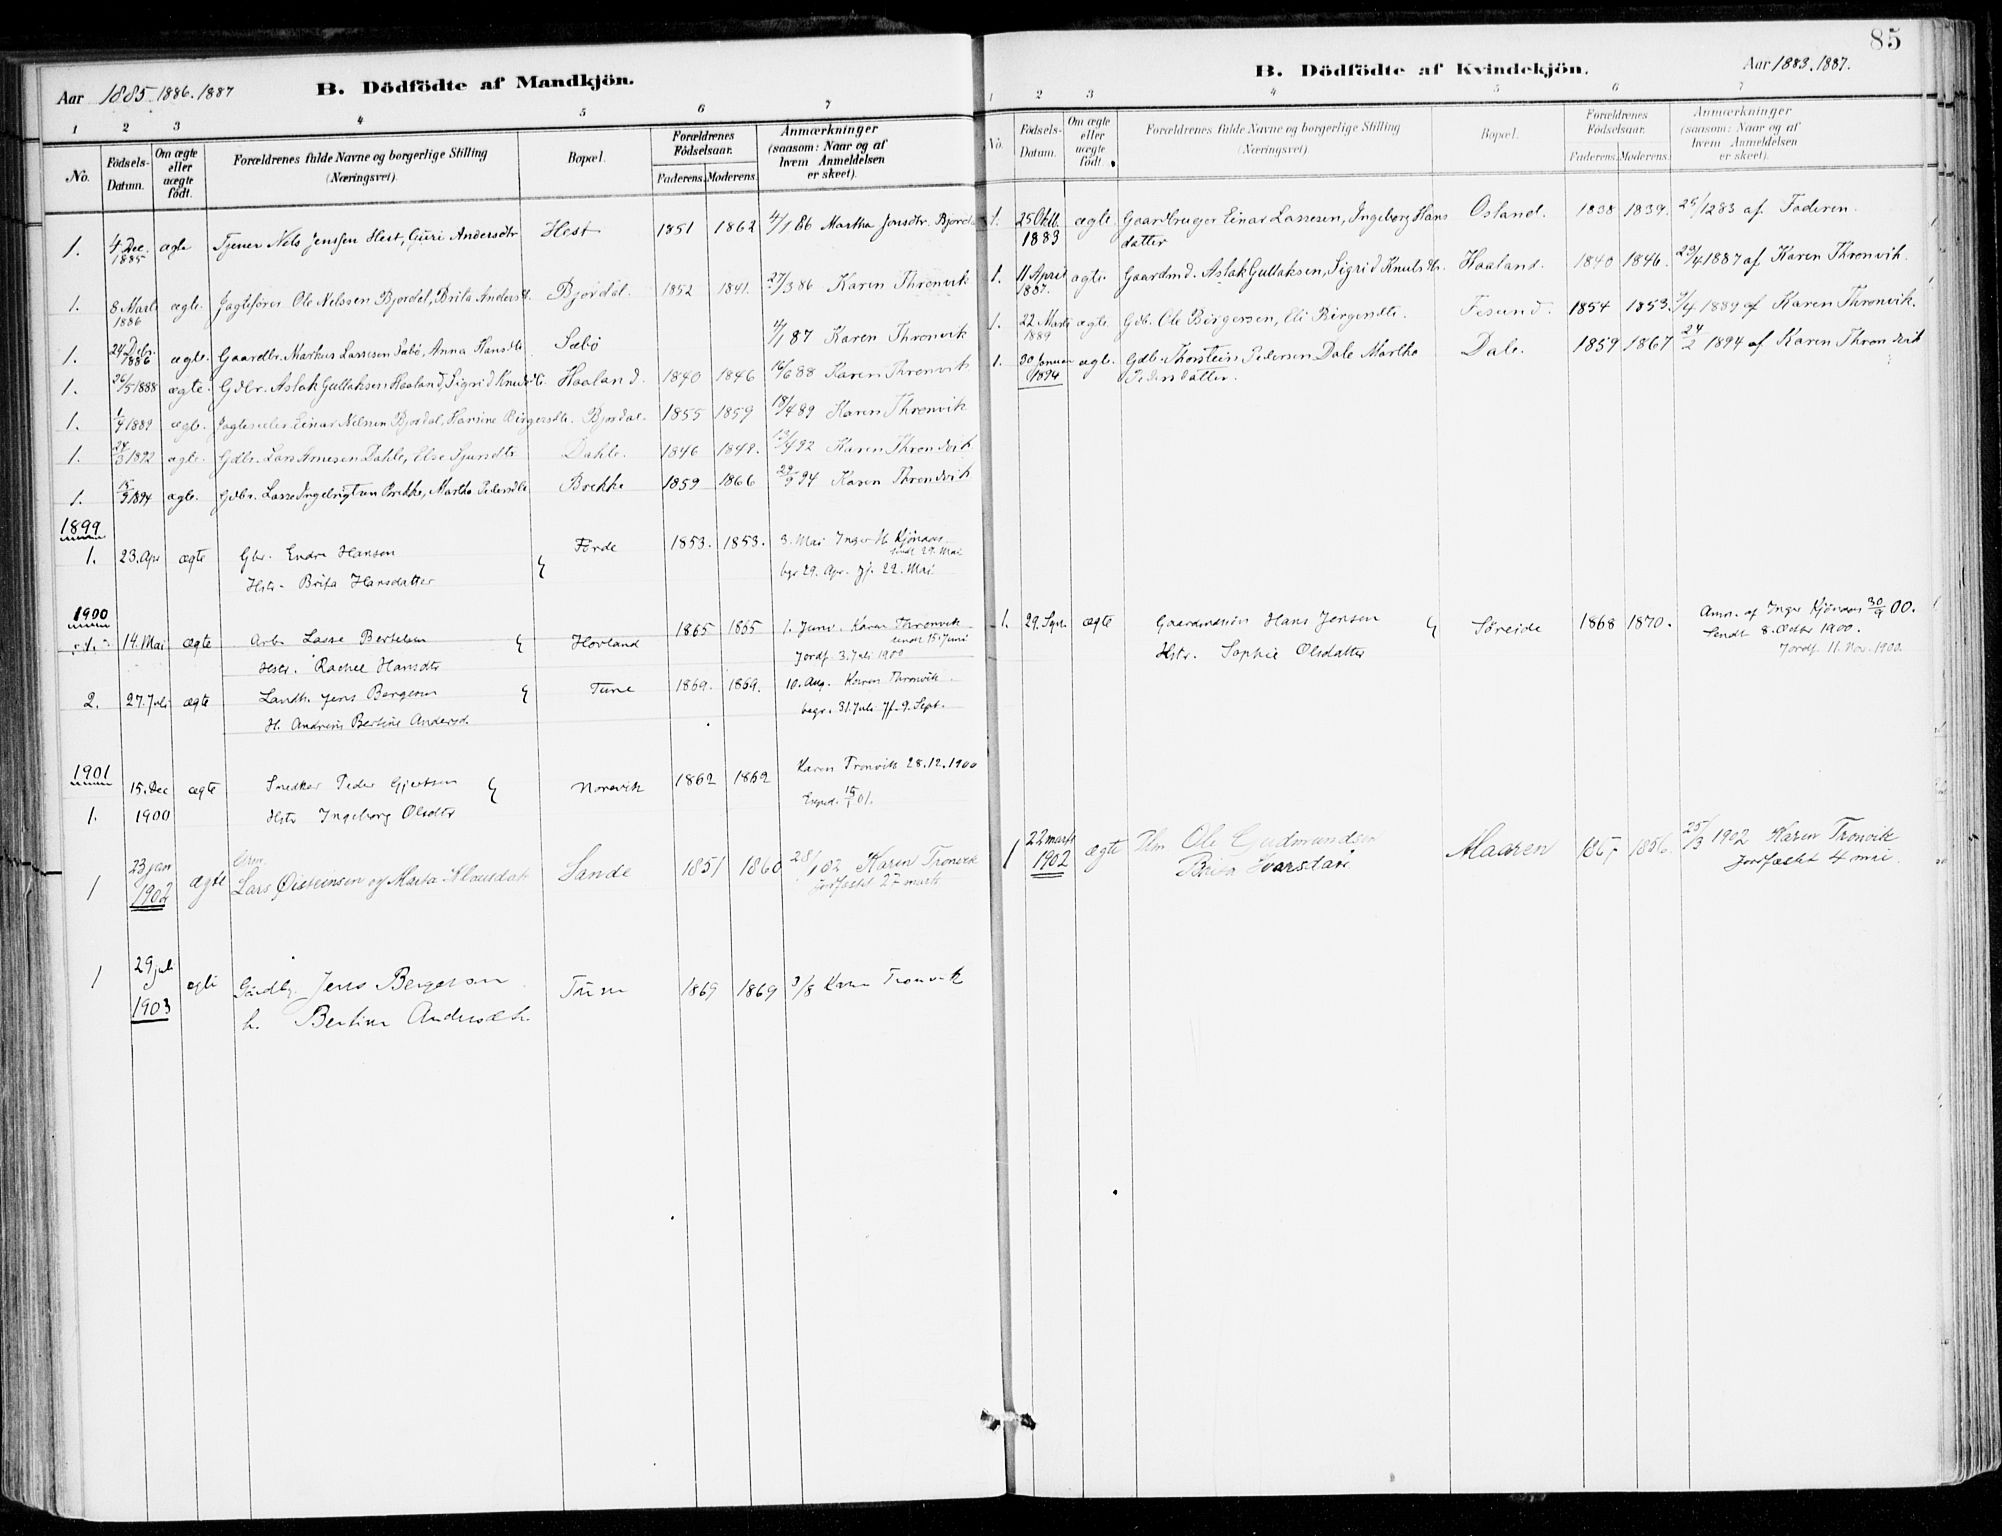 85
Aar 1885. 1886. 1887
B. Dödfödte af Mandkjön.
1 2 3 4 5 6 7
No.
Födsels-Datum.
Om ægte eller uægte födt.
Forældrenes fulde Navne og borgerlige Stilling (Næringsvei).
Bopæl.
Forældrenes Födselsaar.
Faderens. Moderens.
Anmærkninger (saasom: Naar og af hvem Anmeldelsen er skeet).
1. 4 Dec. 1885 ægte Tjener Nels Jenssen Hest, Guri Andersdtr Hest 1851 1862 4/1 86 Martha Jonsdtr. Bjordal
1. 8 Marts 1886 ægte. Ole Nelssen Bjordal, Brita Andersdt. Bjordal. 1852 1841. 27/3 86 Karen Thronvik
1. 24 Debr. 1886 ægte. Gaardbr. Markus Lassesen Sæbö, Anna Hansdtr Sæbö 4/1 87 Karen Thronvik
1. 26/5 1888 ægte. Gdbr. Aslak Gullaksen Haaland, Sigrid Knudsdtr. Haaland. 1840 1846 16/6 88 Karen Thronvik
1. 1/4 1889 ægte. Einar Nelssen Bjordal, Karine Birgersdtr. Bjordal. 1855 1859 18/4 89 Karen Thronvik
1. 24/3 1892 ægte. Gdbr. Lars Arnesen Dahle, Else Sjursdtr Dahle. 1846 1848. 13/4 92 Karen Throndvik
1. 18/9 1894 ægte. Gdbr. Lasse Ingebrigtsen Brekke, Martha Pedersdtr Brekke 1859 1866 29/9 94 Karen Throndvik
1899
1. 23. Apr ægte Gbr. Endre Hansen Förde 1853. 1853. 3. Mai Inger H. Kjönaas
Hstr. Brita Hansdatter sendt 29. Mai
begr 29. Apr. jf. 22. Mai
1900
1. 14. Mai ægte Arb. Lasse Bertelsen Hovland 1865 1865 1. Juni. Karen Thronvik
sendt 15. Juni
Hstr. Rachel Hansdtr Jordf. 3. Juli 1900
2. 27. Juli ægte Landh. Jens Bergesen Tune 1869. 1869. 10. Aug. Karen Thronvik
H. Andrine Bertine Andersd. begr. 31. Juli Jf. 9. Sept.
1901
1. 15. Dec 1900 ægte Snedker Peder Gjertsen Norevik 1862 1862 Karen Tronvik 28.12.1900
Hstr Ingeborg Olsdtr
1 23 jan 1902 ægte Lars Øisteinsen og Marta Klausdat Sande 1851 1860 28/1 02 Karen Tronvik
jordfæstet 27 marts
1 29 juli 1903 ægte Gardbr. Jens Bergesen Tune 1869 1869 3/8 Karen Tronvik
h. Bertine Andersdtr.
B. Dödfödte af Kvindekjön.
Aar 1883. 1887.
1 2 3 4 5 6 7
No.
Födsels-Datum.
Om ægte eller uægte födt.
Forældrenes fulde Navne og borgerlige Stilling (Næringsvei).
Bopæl.
Forældrenes Födselsaar.
Faderens. Moderens.
Anmærkninger (saasom: Naar og af hvem Anmeldelsen er skeet).
1. 25 Oktb. 1883 ægte. Gaardbruger Einar Lassesen, Ingeborg Hans Osland. 1838 1839. 25/12 83 af Faderen.
datter
1. 11 April 1887. ægte Gaardmd. Aslak Gullaksen, Sigrid Knutsdtr. Haaland. 1840 1846. 29/4 1887 af Karen Thronvik.
1. 22 Marts 1889 ægte. Gdb. Ole Birgersen, Eli Birgersdtr. Fesund. 1854 1853. 9/4 1889 af Karen Thronvik.
1. 30 Januar 1894 ægte. Gdbr. Thorstein Pedersen Dale Martha Dale. 1859 1867 24/2 1894 af Karen Throndvik
Pedersdatter.
1. 29. Spt. ægte Gaardmann Hans Jensen Söreide 1868 1870. Anm. af Inger Kjönaas 30/9 00.
Hstr. Sophie Olsdatter Sendt 8. Octbr 1900.
Jordf. 11. Nov. 1900.
1 22 marts 1902 ægte Ole Gudmundsen Maaren 1867 1856 25/3 1902 Karen Tronvik
Brita Ivarsdatr jordfæstet 4 mai